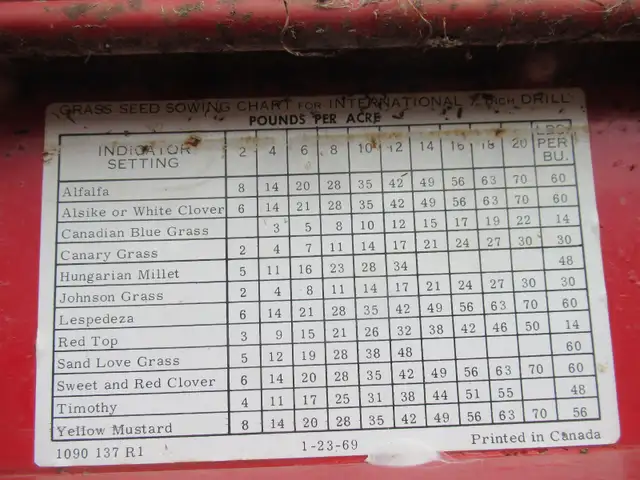 GRASS SEED SOWING CHART FOR INTERNATIONAL 7 INCH DRILL
POUNDS PER ACRE
INDICATOR SETTING 2 4 6 8 10 12 14 16 18 20 LBS. PER BU.
Alfalfa 8 14 20 28 35 42 49 56 63 70 60
Alsike or White Clover 6 14 21 28 35 42 49 56 63 70 60
Canadian Blue Grass 3 5 8 10 12 15 17 19 22 14
Canary Grass 2 4 7 11 14 17 21 24 27 30 30
Hungarian Millet 5 11 16 23 28 34 48
Johnson Grass 2 4 8 11 14 17 21 24 27 30 30
Lespedeza 6 14 21 28 35 42 49 56 63 70 60
Red Top 3 9 15 21 26 32 38 42 46 50 14
Sand Love Grass 5 12 19 28 38 48 60
Sweet and Red Clover 6 14 20 28 35 42 49 56 63 70 60
Timothy 4 11 17 25 31 38 44 51 55 48
Yellow Mustard 8 14 20 28 35 42 49 56 63 70 56
1090 137 R1 1-23-69 Printed in Canada